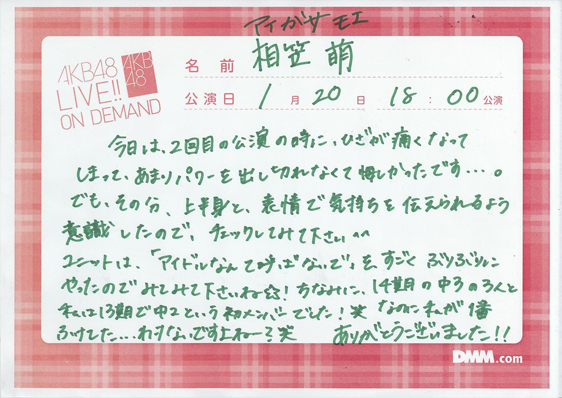 アイガサ モエ
AKB48
LIVE!!
ON DEMAND
AKB
48
名前 相笠 萌
公演日 1月 20日 18:00公演
今日は、2回目の公演の時に、ひざが痛くなって
しまって、あまりパワーを出し切れなくて悔しかったです...。
でも、その分、上半身と、表情で気持ちを伝えられるよう
意識したので、チェックしてみて下さい^^
ユニットは、「アイドルなんて呼ばないで」を、すごくぶりぶりに
やったのでみてみて下さいね☆!ちなみに、14期の中3の3人と
私は13期で中2という初メンバーでした!笑 なのに私が1番
ふけてた...わけないですよねー?笑 ありがとうございました!!
DMM.com